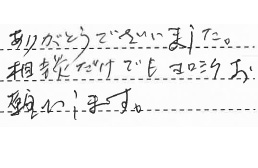 ありがとうございました。
相談だけでもヨロシクお
願いします。